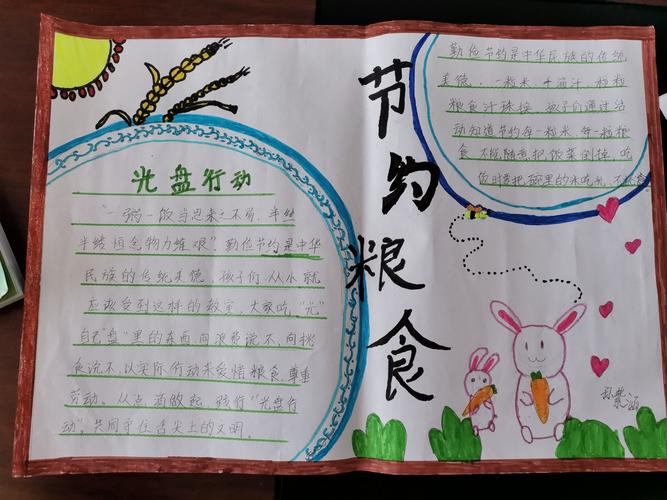 光盘行动
"一粥一饭当思来之不易，半丝
半缕恒念物力维艰"勤俭节约是中华
民族的传统美德，孩子们从小就
应该受到这样的教育，大家吃"光"
自己"盘"里的东西向浪费说不，向挑
食说不，以实际行动来爱惜粮食，尊重
劳动。从点滴做起，践行"光盘行
动"，共同守住舌尖上的文明。
节约粮食
勤俭节约是中华民族的传统
美德，一粒米 千滴汗，粒粒
粮食汗珠换，孩子们通过活
动知道节约每一粒米，每一粒粮
食 不能随意把饭菜倒掉，吃
饭时要把碗里的米吃光，不